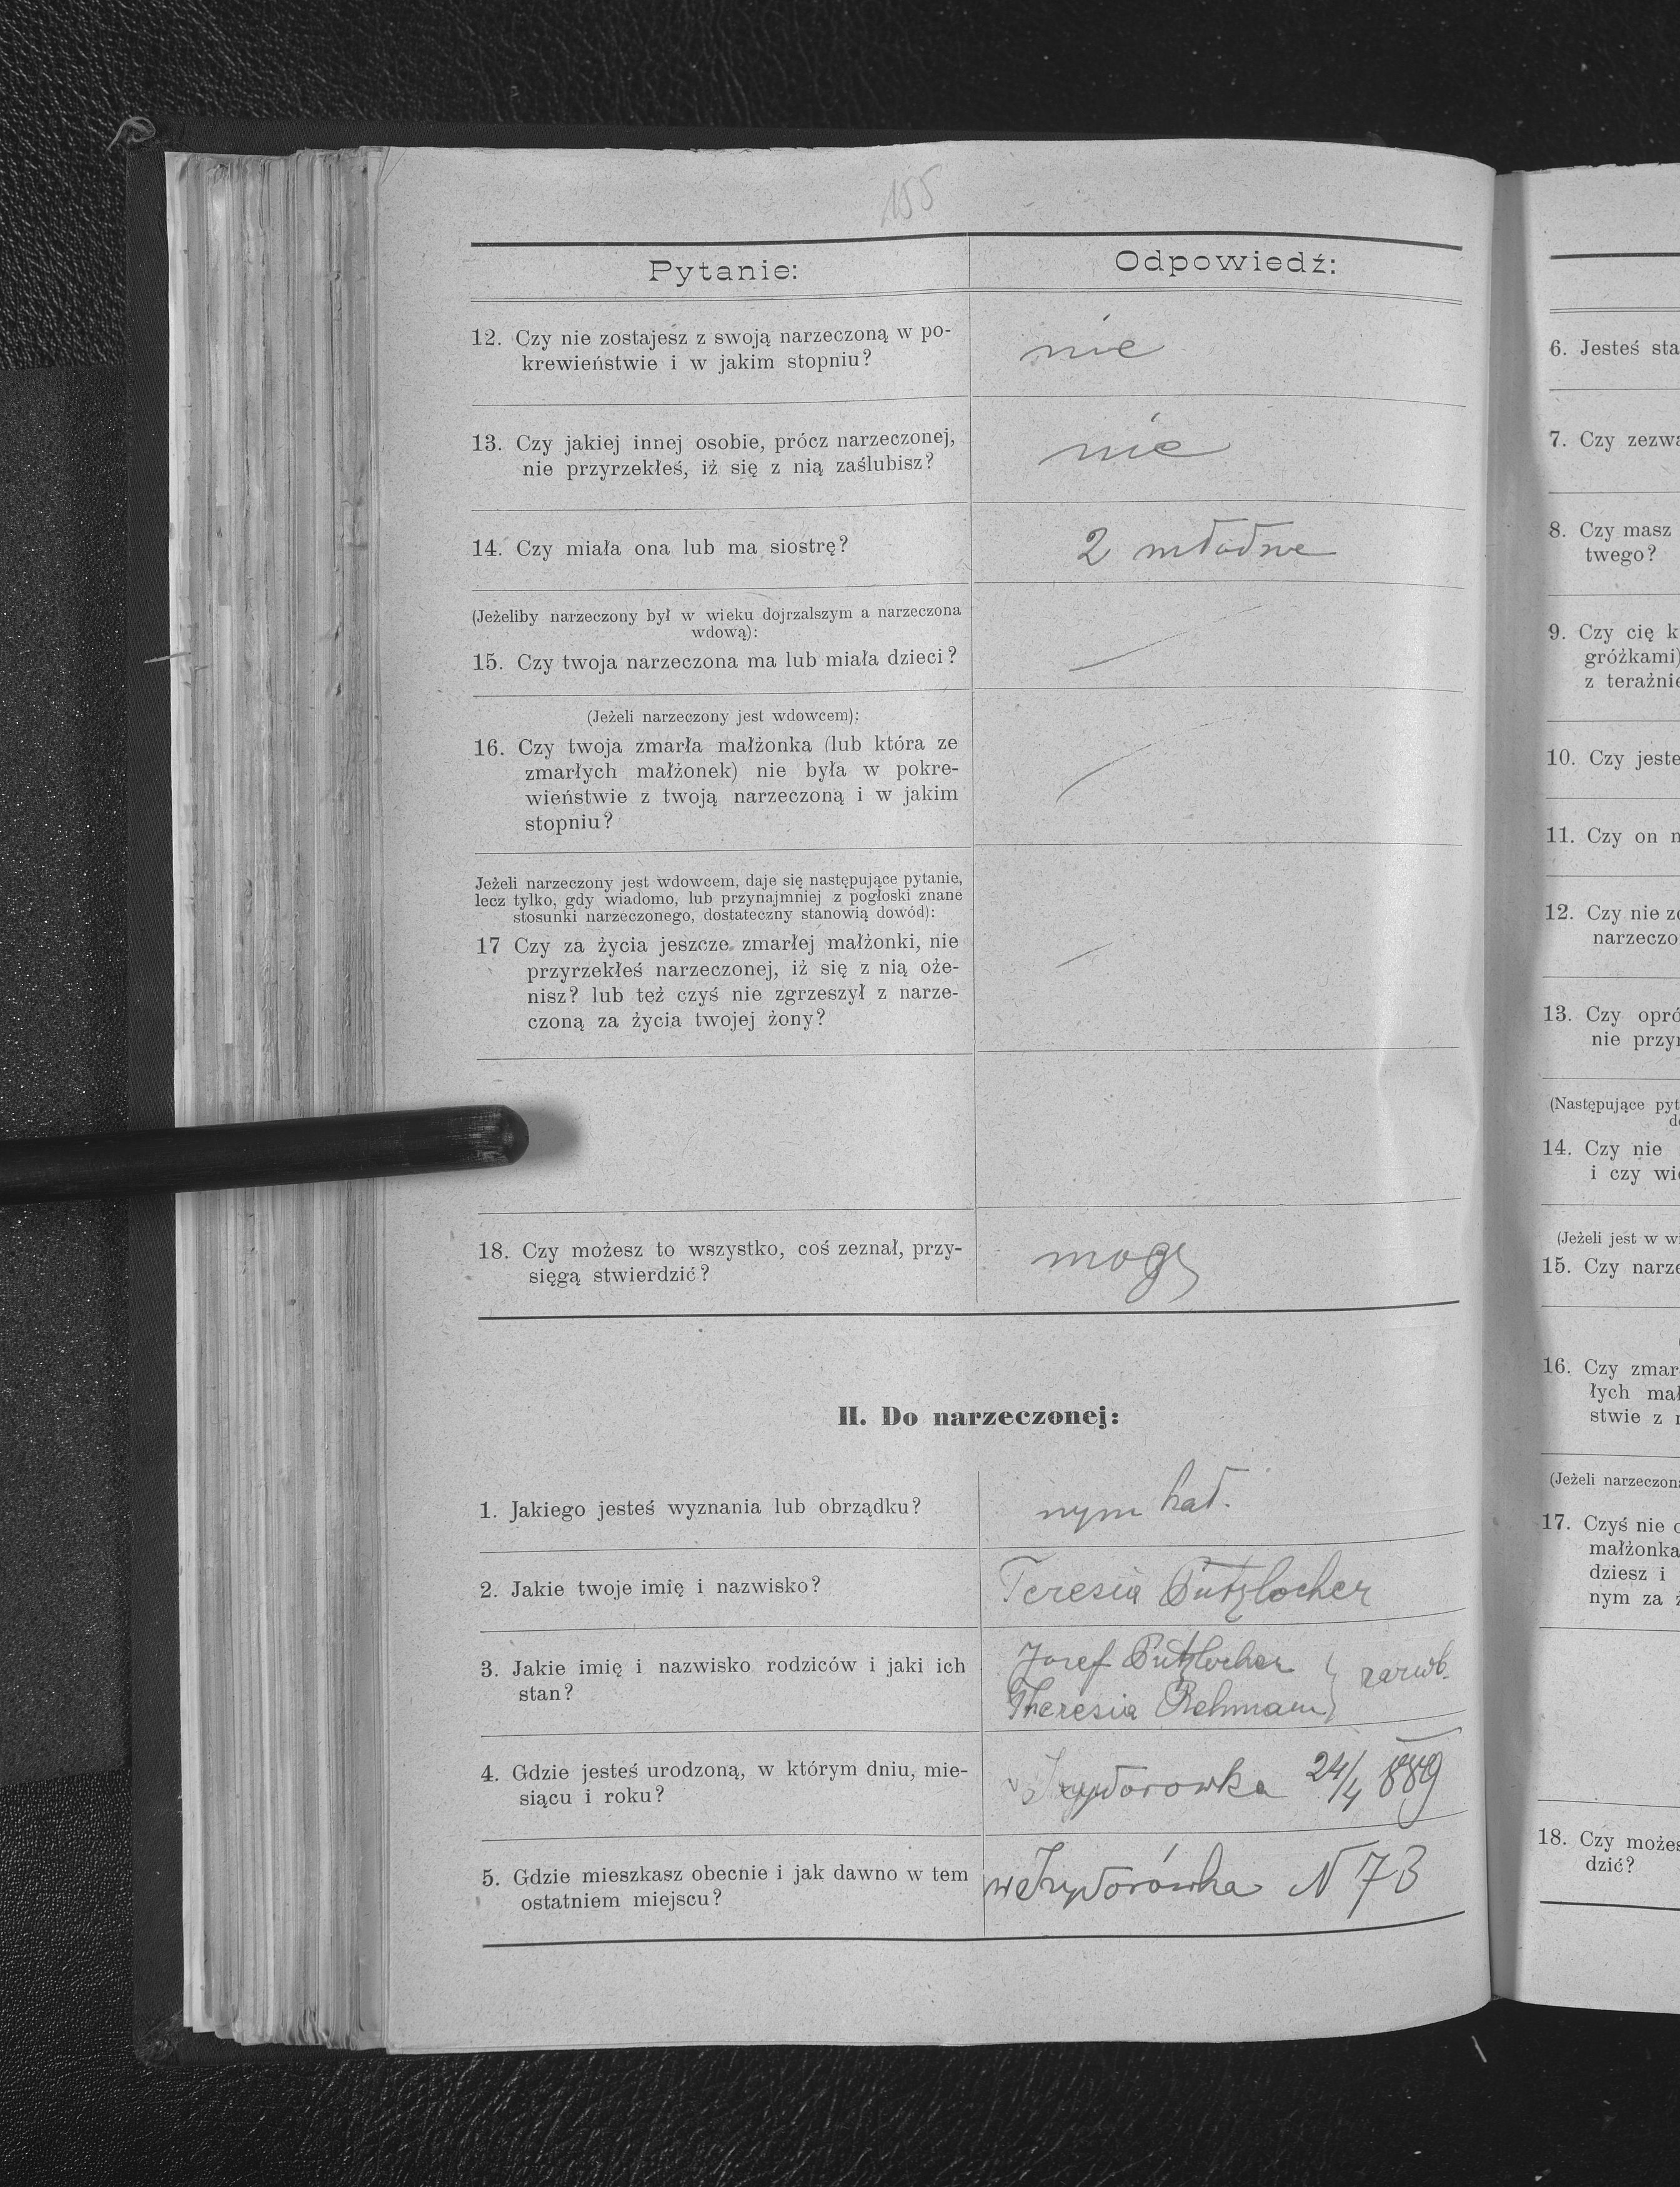 155
Pytanie:
Odpowiedź:
12. Czy nie zostajesz z swoją narzeczoną w po-
krewieństwie i w jakim stopniu?
nie
13. Czy jakiej innej osobie, prócz narzeczonej,
nie przyrzekłeś, iż się z nią zaślubisz?
nie
14. Czy miała ona lub ma siostrę?
2
(Jeżeliby narzeczony był w wieku dojrzalszym a narzeczona
wdową):
15. Czy twoja narzeczona ma lub miała dzieci?
(Jeżeli narzeczony jest wdowcem):
16. Czy twoja zmarła małżonka (lub która ze
zmarłych małżonek) nie była w pokre-
wieństwie z twoją narzeczoną i w jakim
stopniu?
Jeżeli narzeczony jest wdowcem, daje się następujące pytanie,
lecz tylko, gdy wiadomo, lub przynajmniej z pogłoski znane
stosunki narzeczonego, dostateczny stanowią dowód):
17 Czy za życia jeszcze zmarłej małżonki, nie
przyrzekłeś narzeczonej, iż się z nią oże-
nisz? lub też czyś nie zgrzeszył z narze-
czoną za życia twojej żony?
18. Czy możesz to wszystko, coś zeznał, przy-
sięgą stwierdzić?
mogę
II. Do narzeczonej:
1. Jakiego jesteś wyznania lub obrządku?
rzym kat.
2. Jakie twoje imię i nazwisko?
Teresia Putzlocher
3. Jakie imię i nazwisko rodziców i jaki ich
stan?
Josef Putzlocher
Theresia Rehmann
zarob.
4. Gdzie jesteś urodzoną, w którym dniu, mie-
siącu i roku?
Izydorowka 24/4 889
5. Gdzie mieszkasz obecnie i jak dawno w tem
ostatniem miejscu?
w Izydorówka N 73
6. Jesteś sta
7. Czy zezwa
8. Czy masz
twego?
9. Czy cię k
gróżkami)
z teraźnie
10. Czy jeste
11. Czy on n
12. Czy nie zo
narzeczo
13. Czy opró
nie przyr
(Następujące pyt
d
14. Czy nie
i czy wie
(Jeżeli jest w wi
15. Czy narze
16. Czy zmar
łych mał
stwie z n
(Jeżeli narzeczona
17. Czyś nie o
małżonka
dziesz i
nym za ż
18. Czy możes
dzić?